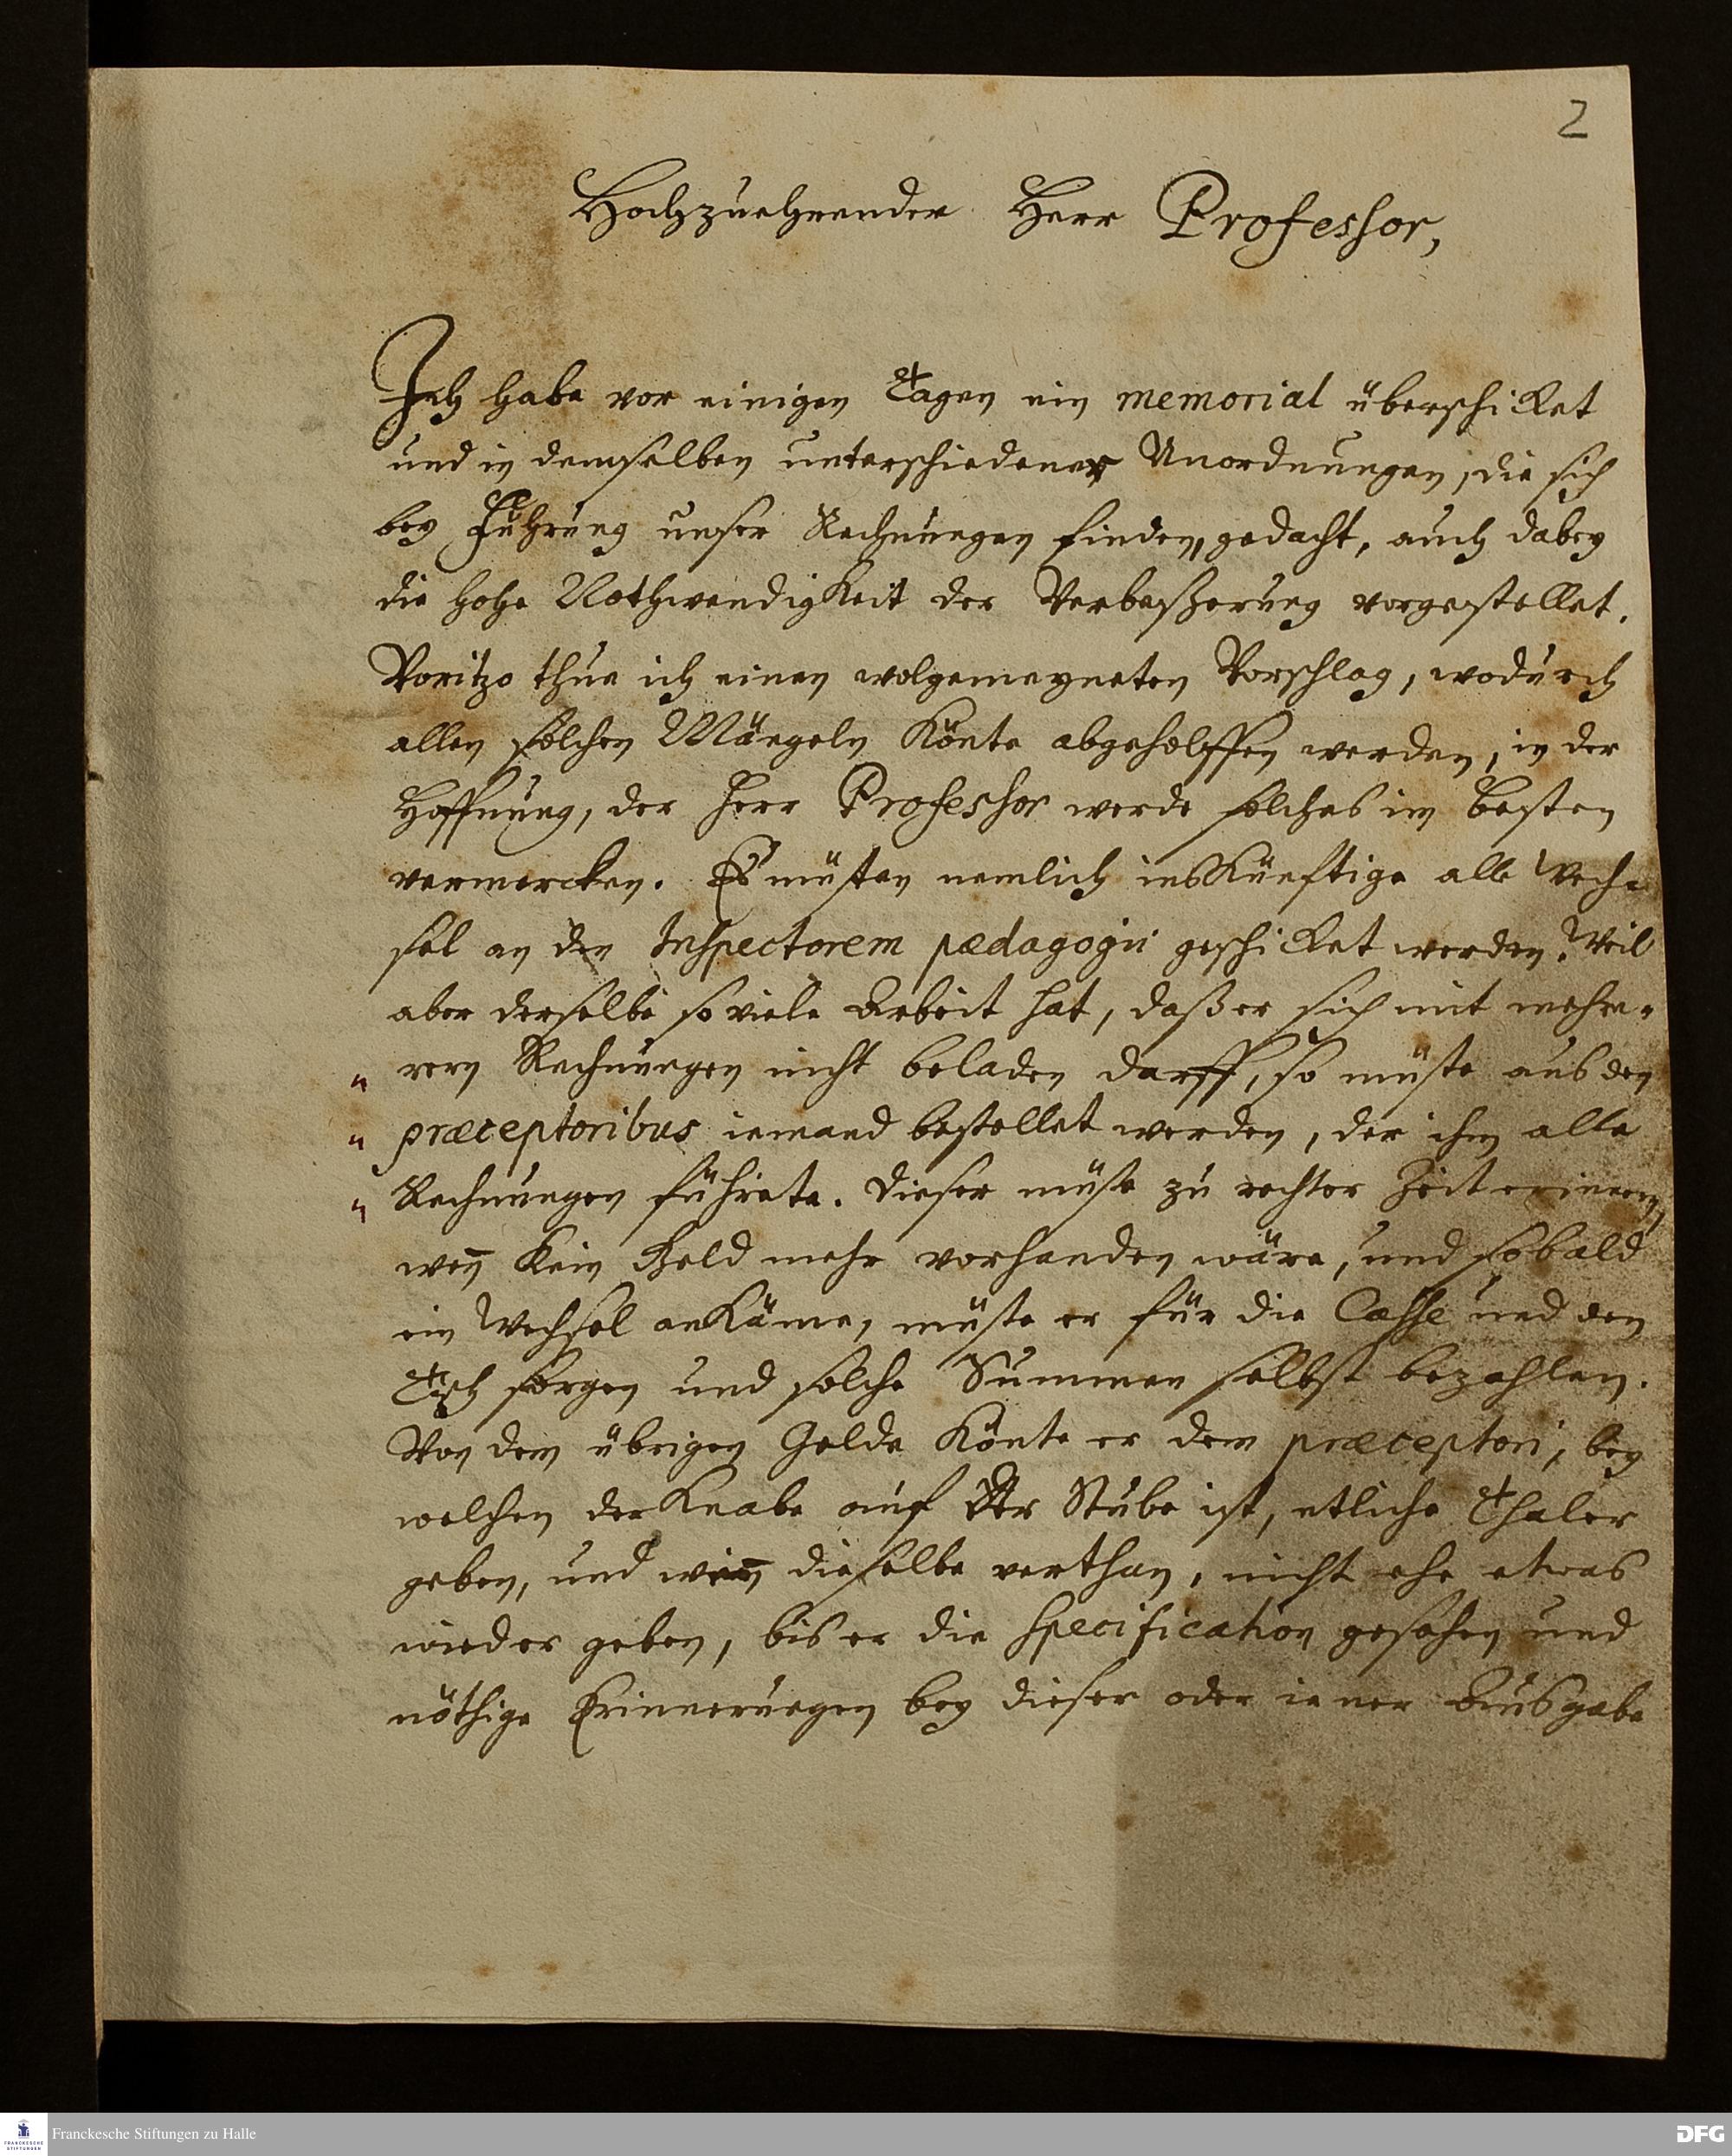 2
Hochzuehrender Herr Professor,
Ich habe vor einigen Tagen ein memorial überschicket
und in demselben unterschiedener Unordnungen, die sich
bey Führung unser Rechnungen finden, gedacht, auch dabey
die hohe Nothwendigkeit der Verbeßerung vorgestellet.
Voritzo thue ich einen wolgemeyneten Vorschlag, wodurch
allen solchen Mängeln könte abgeholffen werden, in der
Hoffnung, der Herr Professor werde solches im besten
vermercken. Es müsten nemlich ins künftige alle Wech-
sel an den Inspectorem pædagogii geschicket werden. Weil
aber derselbe so viele Arbeit hat, daß er sich mit mehre-
" rern Rechnungen nicht beladen darff, so müste aus den
" præceptoribus iemand bestellet werden, der ihm alle
" Rechnungen führete. Dieser müste zu rechter Zeit erinnern,
weñ kein Geld mehr vorhanden wäre, und sobald
ein Wechsel ankäme, müste er für die Casse und den
Tisch sorgen und solche Summen selbst bezahlen.
Von dem übrigen Gelde könte er dem præceptori, bey
welchen der Knabe auf der Stube ist, etliche Thaler
geben, und weñ dieselbe verthan, nicht ehe etwas
wieder geben, bis er die specification gesehen und
nöthige Erinnerungen bey dieser oder iener Ausgabe
Franckesche Stiftungen zu Halle
DFG